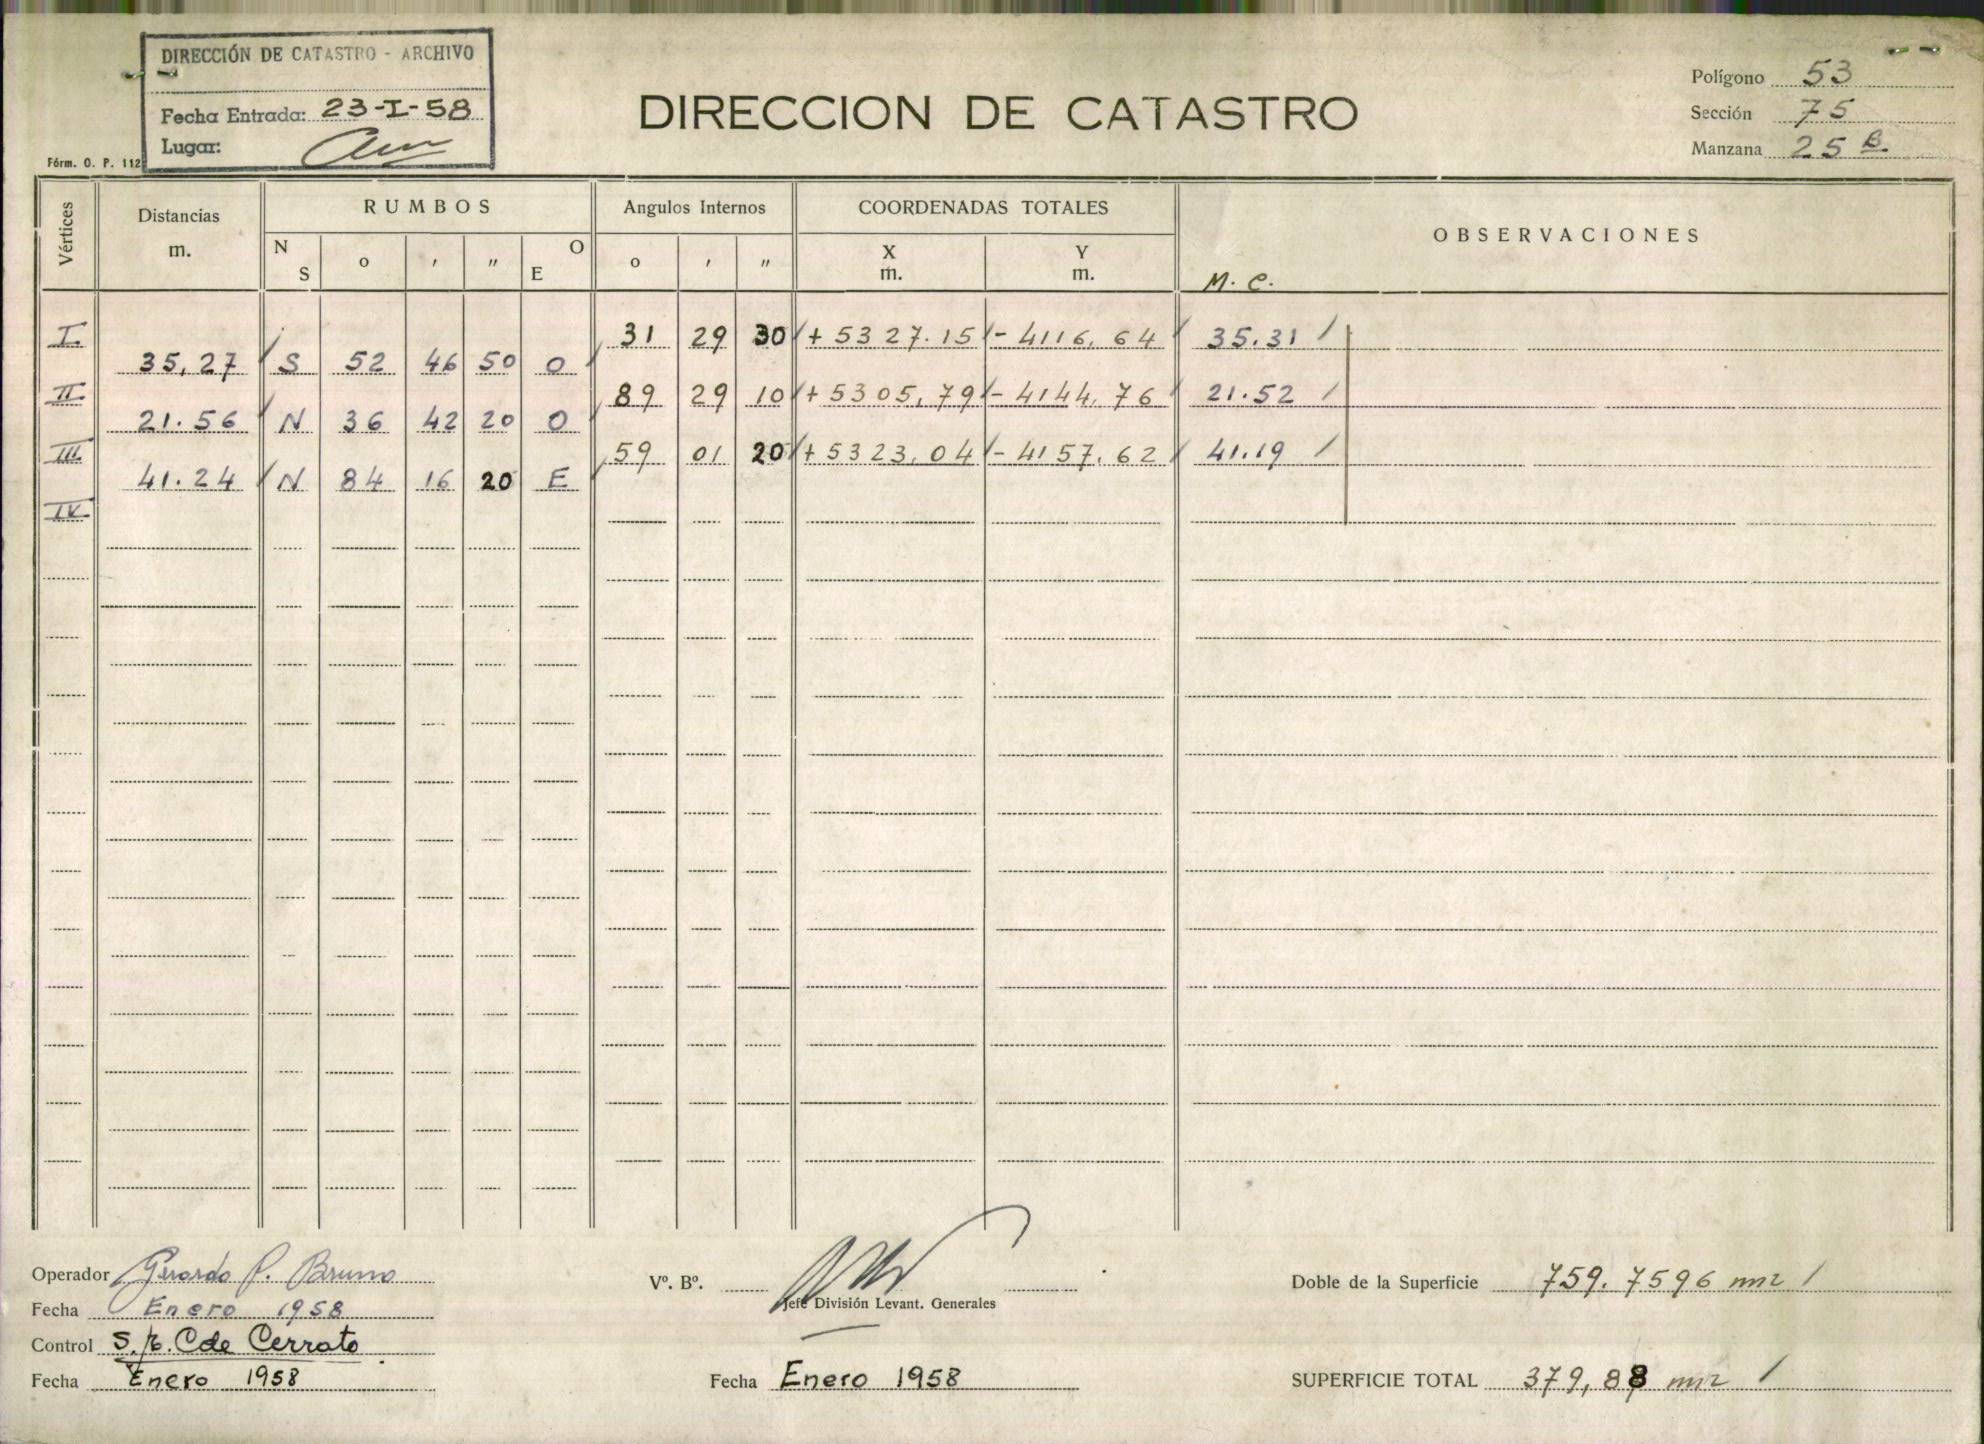 DIRECCIÓN DE CATASTRO - ARCHIVO
Fecha Entrada: 23-I-58
Lugar:
Fórm. O. P. 112
DIRECCION DE CATASTRO
Polígono 53
Sección 75
Manzana 25 B.
Vértices Distancias m. RUMBOS Angulos Internos COORDENADAS TOTALES OBSERVACIONES
N S o ' " O E o ' " X m. Y m. M. C.
I 31 29 30 + 5327.15 - 4116,64 35.31
35,27 S 52 46 50 O
II 89 29 10 + 5305,79 - 4144,76 21.52
21.56 N 36 42 20 O
III 59 01 20 + 5323,04 - 4157,62 41.19
41.24 N 84 16 20 E
IV
Operador Gerardo P. Bruno
Fecha Enero 1958
Control S. p. Cde Cerrato
Fecha Enero 1958
Vº. Bº.
Jefe División Levant. Generales
Fecha Enero 1958
Doble de la Superficie 759.7596 m2
SUPERFICIE TOTAL 379,88 m2